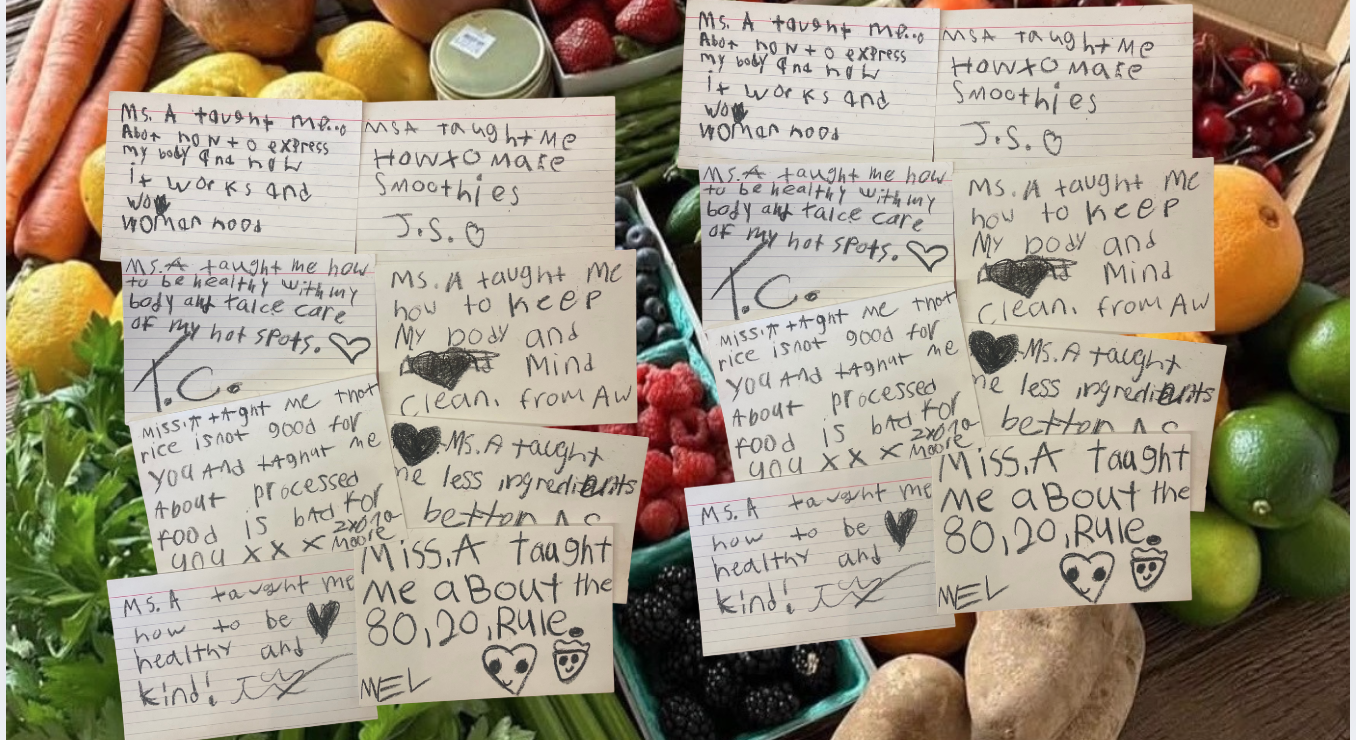 Ms. A taught me...
Abot how to express
my body and how
it works and
wo
woman hood
MSA taught Me
How to Make
Smoothies
J.S.
Ms. A taught me how
to be healthy with my
body and take care
of my hot spots.
T.C.
Ms. A taught Me
how to keep
My body and
Mind
Clean. from Aw
Miss.A tAght me that
rice is not good for
you And tAghut me
About processed
food is bAd for
you x x x
Moore
Ms. A taught
me less ingredients
better A.S
Ms. A taught me
how to be
healthy and
kind!
Miss.A taught
me aBout the
80,20,Rule.
MEL
Ms. A taught me...
Abot how to express
my body and how
it works and
wo
woman hood
MSA taught Me
How to Make
Smoothies
J.S.
Ms. A taught me how
to be healthy with my
body and take care
of my hot spots.
T.C.
Ms. A taught Me
how to keep
My body and
Mind
Clean. from Aw
Miss.A tAght me that
rice is not good for
you And tAghut me
About processed
food is bAd for
you x x x
Moore
Ms. A taught
me less ingredients
better A.S
Ms. A taught me
how to be
healthy and
kind!
Miss.A taught
me aBout the
80,20,Rule.
MEL